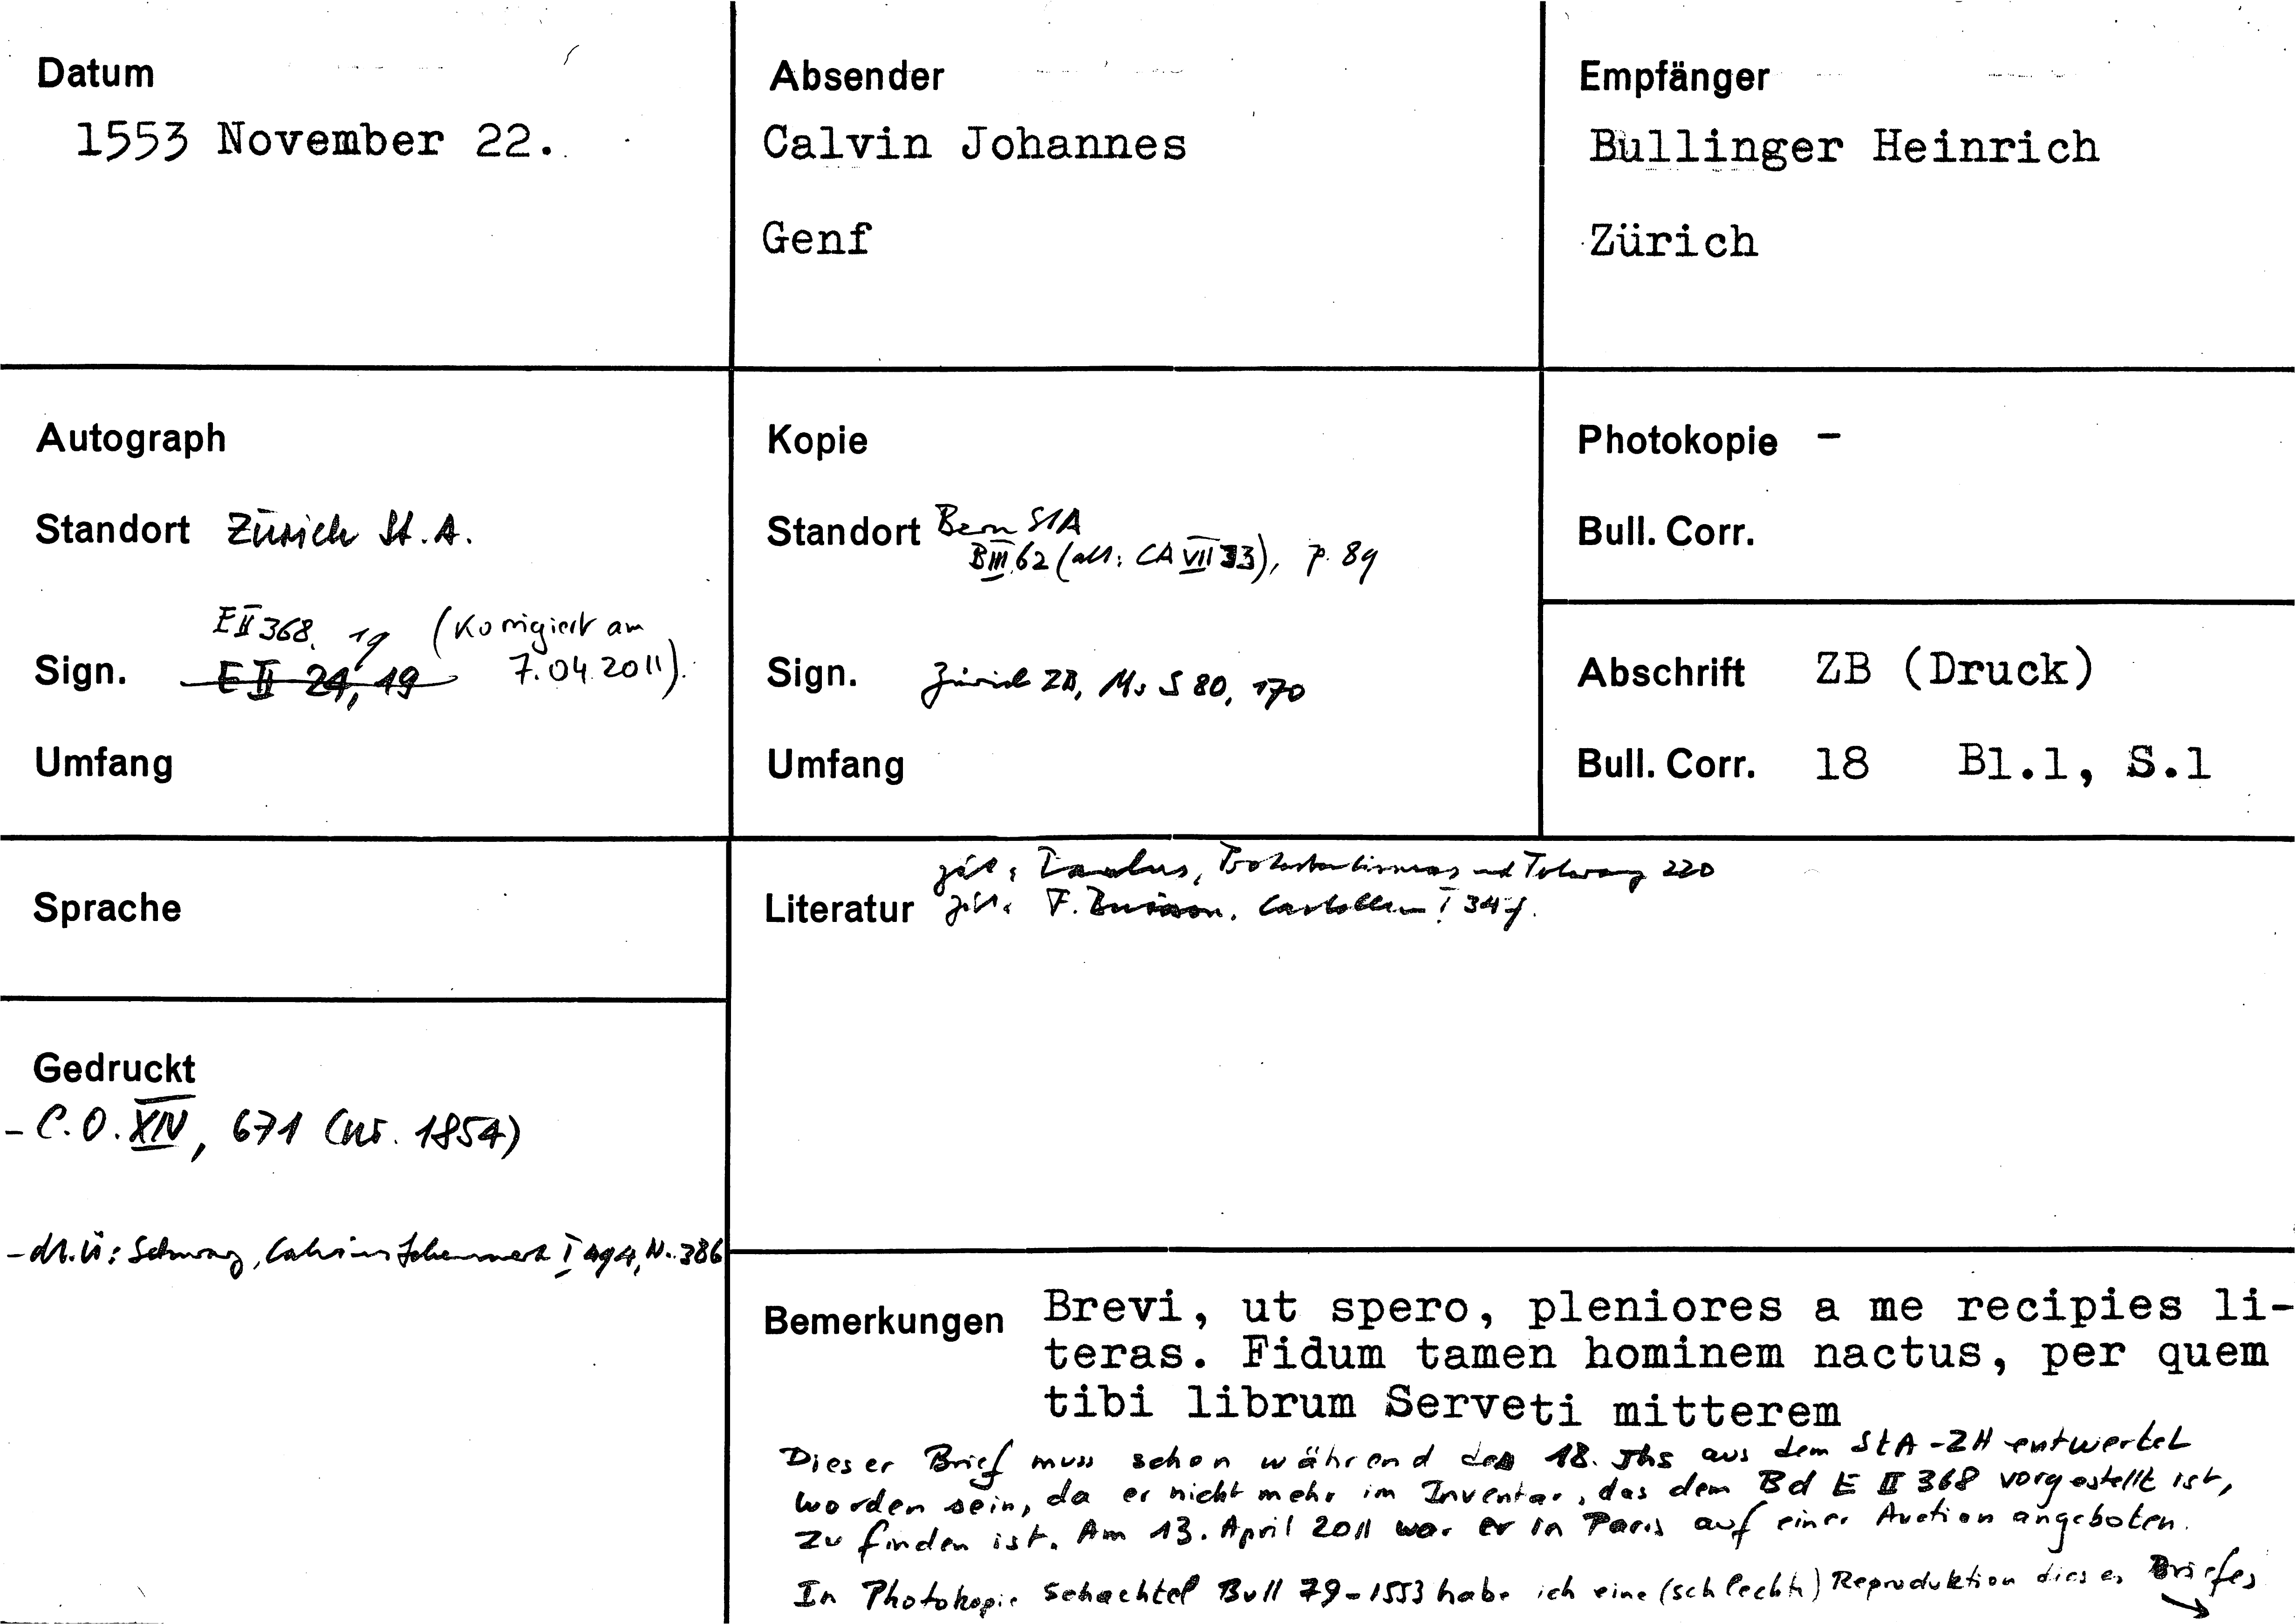 Datum
1553 November 22.
Absender
Calvin Johannes
Genf
Empfänger
Bullinger Heinrich
Zürich
Autograph
Standort Zürich St.A.
E II 368, 19 (Korrigiert am
7.04.2011).
Sign. E II 24, 19
Umfang
Kopie
Standort Bern StA
B III 62 (alt: CA VII 33), p. 89
Sign. Zürich ZB, Ms S 80, 170
Umfang
Photokopie –
Bull. Corr.
Abschrift ZB (Druck)
Bull. Corr. 18 Bl.1, S.1
Sprache
zit: Paulus, Protestantismus und Toleranz 220
Literatur zit: F. Buisson, Castellion I 34
Gedruckt
- C.O. XIV, 671 (nr. 1854)
- dt.Ü: Schwarz, Calvins Lebenswerk I 494, N. 386
Bemerkungen Brevi, ut spero, pleniores a me recipies li-
teras. Fidum tamen hominem nactus, per quem
tibi librum Serveti mitterem
Dieser Brief muss schon während des 18. Jhs aus dem StA-ZH entwertet
worden sein, da er nicht mehr im Inventar, das dem Bd E II 368 vorgestellt ist,
zu finden ist. Am 13. April 2011 war er in Paris auf einer Auction angeboten.
In Photokopie Schachtel Bull 79-1553 habe ich eine (schlechte) Reproduktion dieses Briefes →